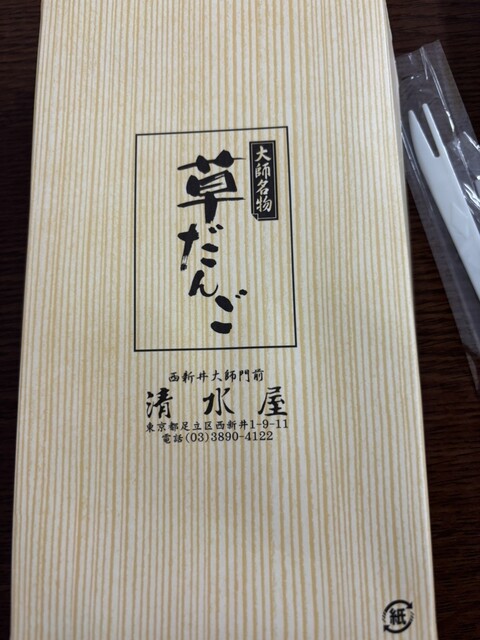 大師名物
草だんご
西新井大師門前
清水屋
東京都足立区西新井1-9-11
電話(03)3890-4122
紙